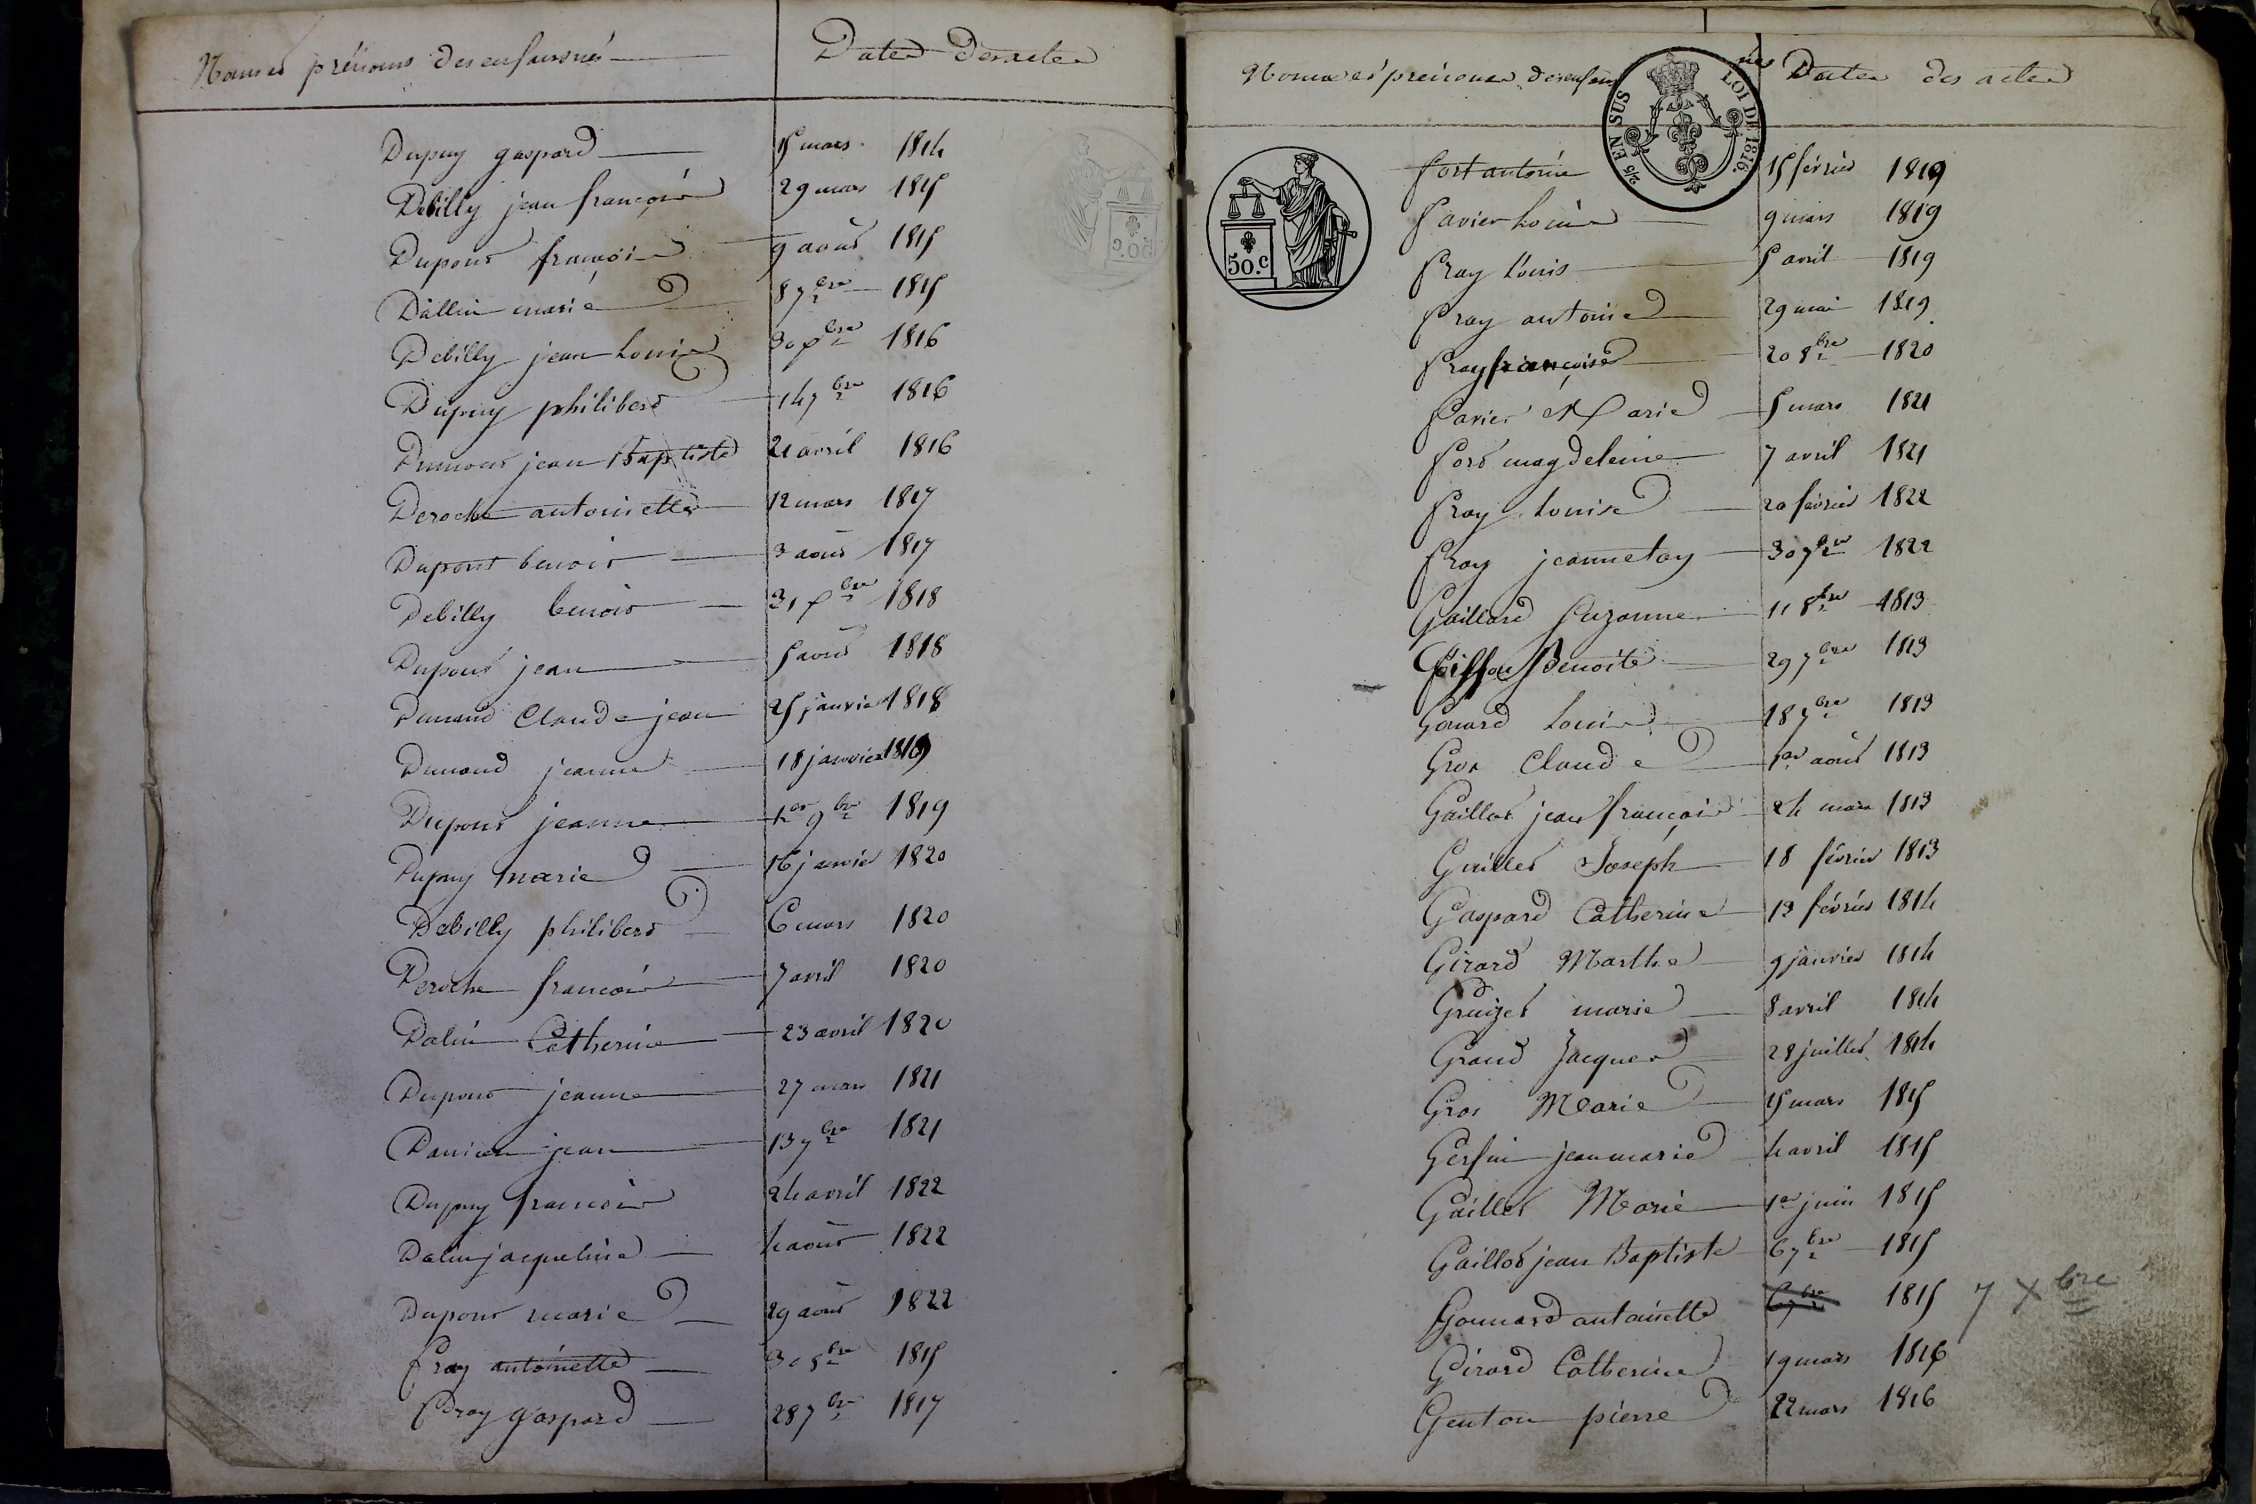 Noms et prénoms des enfans nés Dates des actes
Dupuy gaspard 15 mars 1814
Debilly jean françois 29 mars 1815
Dupont françois 9 août 1815
Dallin marie 8 7bre 1815
Debilly jean Louis 30 Xbre 1816
Dupuy philibert 14 7bre 1816
Dumont jean Baptiste 21 avril 1816
Deroche antoinette 12 mars 1817
Dupont benoit 3 août 1817
Debilly benoit 31 Xbre 1818
Dupont jean 5 août 1818
Durand Claude jean 25 janvier 1818
Durand jeanne 18 janvier 1819
Dupont jeanne 1er 9bre 1819
Dupuy marie 16 janvier 1820
Debilly philibert 6 mars 1820
Deroche françois 7 avril 1820
Dalin Catherine 23 avril 1820
Dupont jeanne 27 mars 1821
jean 13 7bre 1821
Dupuy françois 24 avril 1822
Dalin jacqueline 4 août 1822
Dupont marie 29 août 1822
fray antoinette 30 8bre 1815
fray gaspard 28 7bre 1817
Noms et prénoms des enfans nés Dates des actes
2/5 EN SUS LOI DE 1816.
50.c
fort antoine 15 février 1819
favier Louis 9 mars 1819
fray Louis 5 avril 1819
fray antoine 29 mai 1819
fray françoise 20 8bre 1820
favier Marie 5 mars 1821
fort magdeleine 7 avril 1821
fray Louise 20 février 1822
fray jeanne 30 7bre 1822
Gaillard Suzanne 11 8bre 1813
Benoite 29 7bre 1813
Gonard Louis 18 7bre 1813
Gros Claude 1er août 1813
Gaillot jean françois 24 mars 1813
Joseph 18 février 1813
Gaspard Catherine 13 février 1814
Girard Marthe 9 janvier 1814
Gruizet marie 8 avril 1814
Grand Jacques 28 juillet 1814
Gros Marie 15 mars 1815
Gerfin jean marie 4 avril 1815
Gaillot Marie 1er juin 1815
Gaillot jean Baptiste 6 7bre 1815
Gonnard antoinette 6 7bre 1815 7 Xbre
Girard Catherine 19 mars 1816
Genton pierre 22 mars 1816